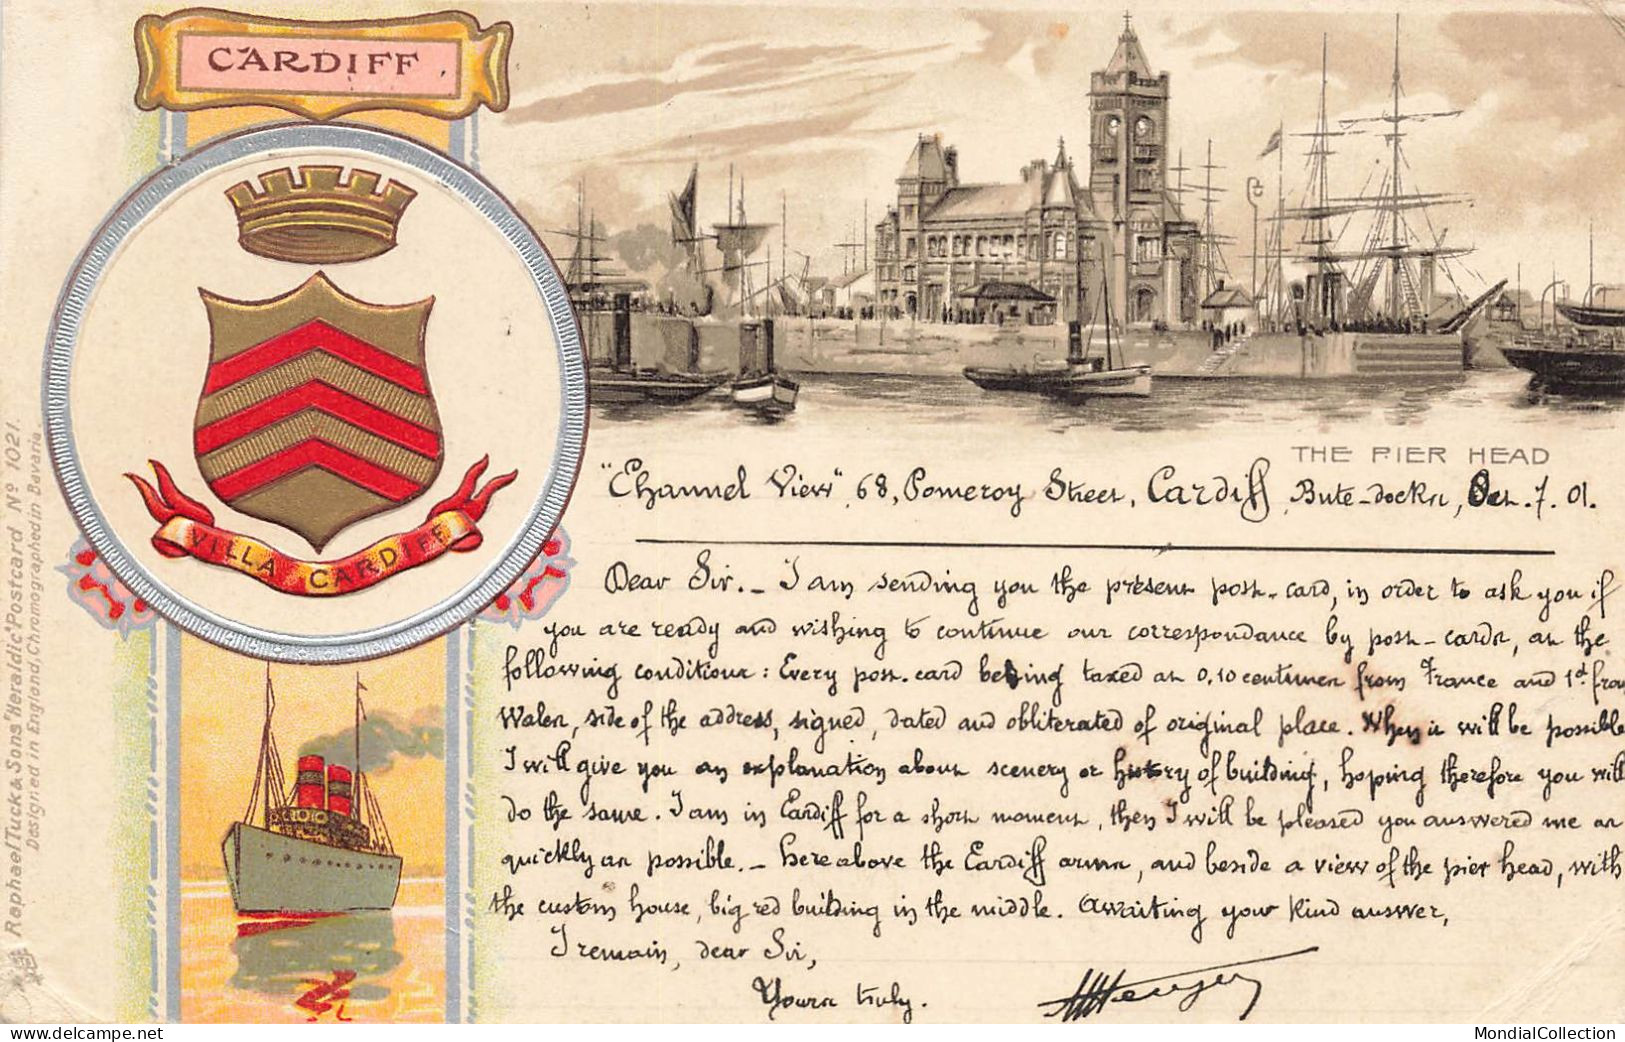 CARDIFF
VILLA CARDIFF
Raphael Tuck & Sons "Heraldic" Postcard Nº 1021.
Designed in England, Chromographed in Bavaria.
THE PIER HEAD
"Channel View", 68, Pomeroy Street, Cardiff, Bute-docks, Oct. 7. 01.
Dear Sir. - I am sending you the present post-card, in order to ask you if
you are ready and wishing to continue our correspondance by post-cards, at the
following conditions: Every post-card being taxed at 0,10 centimes from France and 1d. from
Wales, side of the address, signed, dated and obliterated of original place. When it will be possible
I will give you an explanation about scenery or history of building, hoping therefore you will
do the same. I am in Cardiff for a short moment, then I will be pleased you answered me as
quickly as possible. - Here above the Cardiff arms, and beside a view of the pier head, with
the custom house, big red building in the middle. Awaiting your kind answer,
I remain, dear Sir,
Yours truly.
MondialCollection